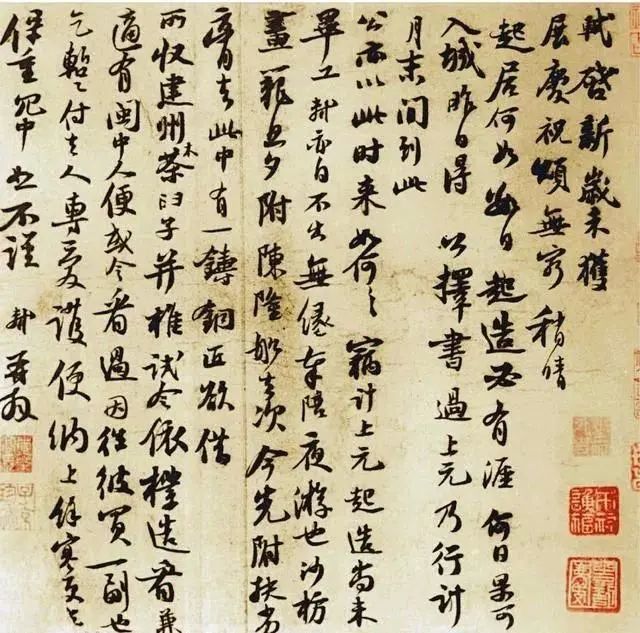 軾啓新歲未獲
展慶祝頌無窮稍晴
起居何如數日起造必有涯何日果可
入城昨日得公擇書過上元乃行計
月末間到此
公亦以此時來如何々竊計上元起造尚未
畢工軾亦自不出無緣奉陪夜游也沙枋
畫籠旦夕附陳隆船去次今先附扶劣
膏去此中有一鑄銅匠欲借
所收建州木茶臼子并椎試令依樣造看兼
適有閩中人便或令看過因往彼買一副也
乞暫付去人專愛護便納上餘寒更乞
保重冗中恕不謹 軾再拜